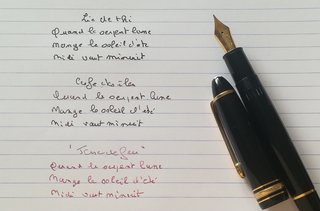 Lie de thé
Quand le serpent lune
Mange le soleil d'été
Midi vaut minuit
Café des îles
Quand le serpent lune
Mange le soleil d'été
Midi vaut minuit
"Terre de feu"
Quand le serpent lune
Mange le soleil d'été
Midi vaut minuit